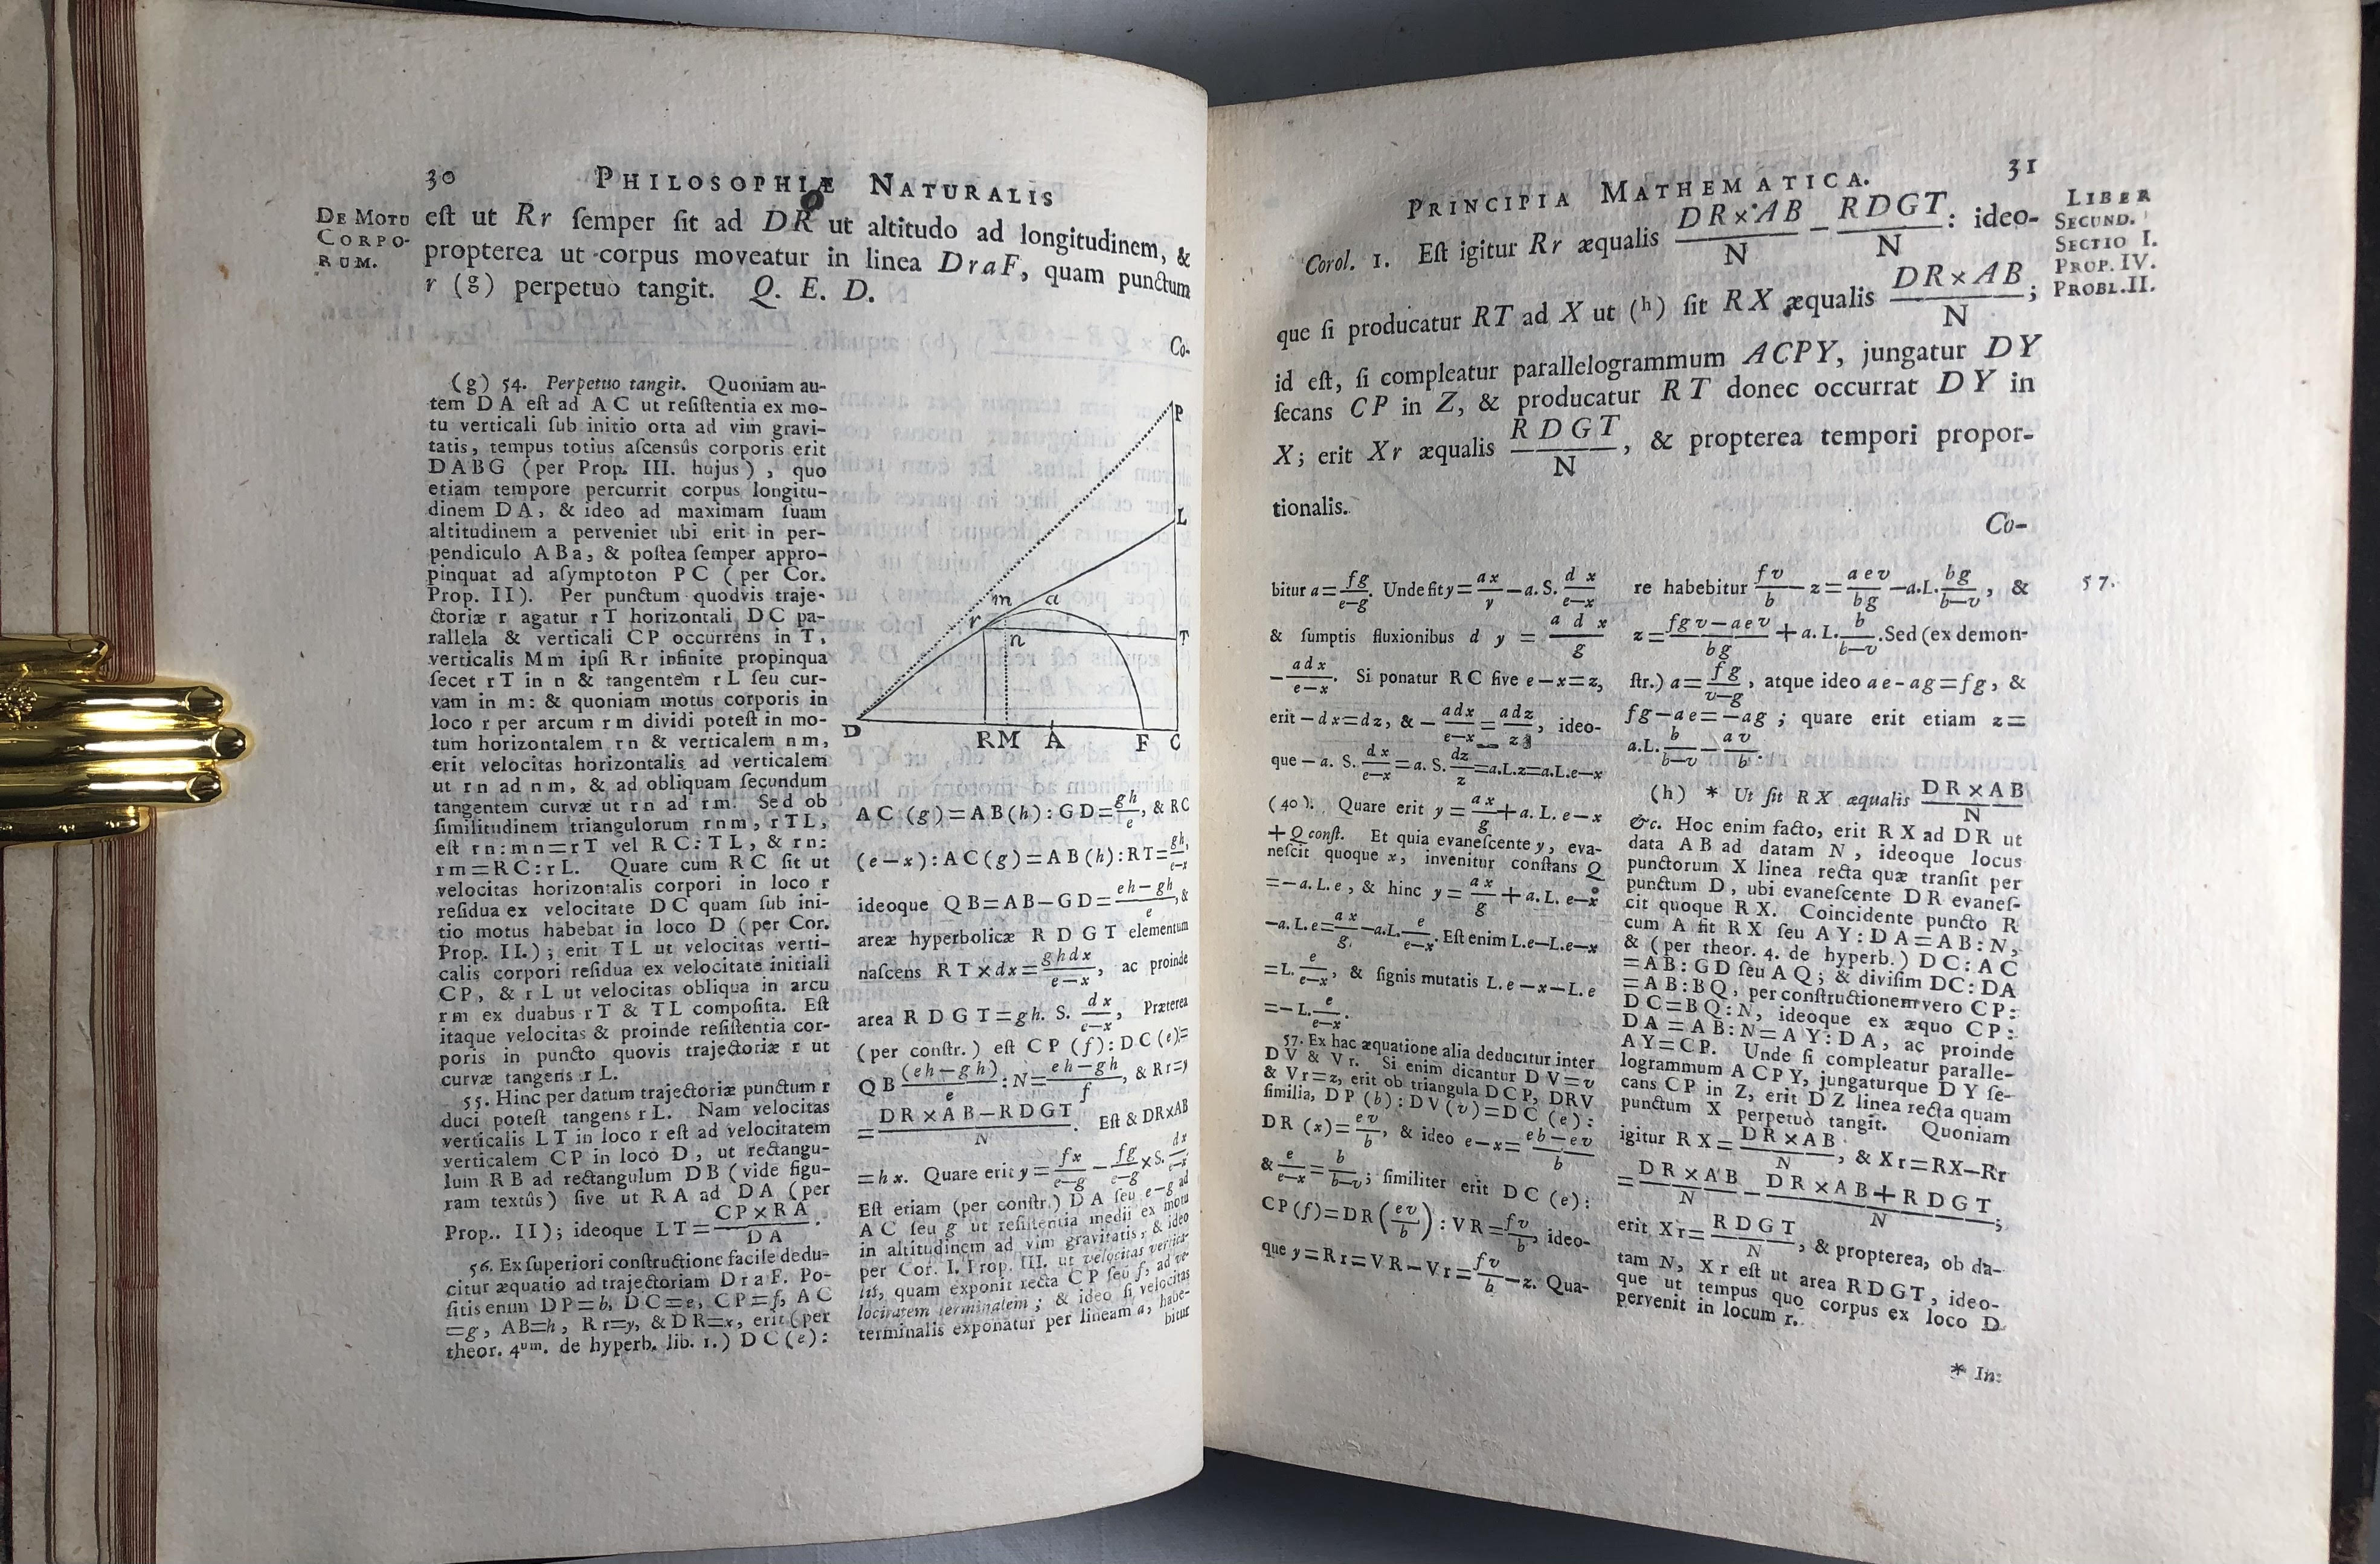 30 PHILOSOPHIÆ NATURALIS
DE MOTU
CORPO-
RUM.
eſt ut Rr ſemper ſit ad DR ut altitudo ad longitudinem, &
propterea ut corpus moveatur in linea DraF, quam punctum
r (g) perpetuò tangit. Q. E. D.
Co-
(g) 54. Perpetuo tangit. Quoniam au-
tem DA eſt ad AC ut reſiſtentia ex mo-
tu verticali ſub initio orta ad vim gravi-
tatis, tempus totius aſcensûs corporis erit
DABG (per Prop. III. hujus), quo
etiam tempore percurrit corpus longitu-
dinem DA, & ideo ad maximam ſuam
altitudinem a perveniet ubi erit in per-
pendiculo ABa, & poſtea ſemper appro-
pinquat ad aſymptoton PC (per Cor.
Prop. II). Per punctum quodvis traje-
ctoriæ r agatur rT horizontali DC pa-
rallela & verticali CP occurrens in T,
verticalis Mm ipſi Rr infinite propinqua
ſecet rT in n & tangentem rL ſeu cur-
vam in m: & quoniam motus corporis in
loco r per arcum rm dividi poteſt in mo-
tum horizontalem rn & verticalem nm,
erit velocitas horizontalis ad verticalem
ut rn ad nm, & ad obliquam ſecundum
tangentem curvæ ut rn ad rm. Sed ob
ſimilitudinem triangulorum rnm, rTL,
eſt rn:mn=rT vel RC:TL, & rn:
rm=RC:rL. Quare cum RC ſit ut
velocitas horizontalis corpori in loco r
reſidua ex velocitate DC quam ſub ini-
tio motus habebat in loco D (per Cor.
Prop. II.); erit TL ut velocitas verti-
calis corpori reſidua ex velocitate initiali
CP, & rL ut velocitas obliqua in arcu
rm ex duabus rT & TL compoſita. Eſt
itaque velocitas & proinde reſiſtentia cor-
poris in puncto quovis trajectoriæ r ut
curvæ tangens rL.
55. Hinc per datum trajectoriæ punctum r
duci poteſt tangens rL. Nam velocitas
verticalis LT in loco r eſt ad velocitatem
verticalem CP in loco D, ut rectangu-
lum RB ad rectangulum DB (vide figu-
ram textûs) ſive ut RA ad DA (per
Prop. II); ideoque LT=CP×RA/DA.
56. Ex ſuperiori conſtructione facile dedu-
citur æquatio ad trajectoriam DraF. Po-
ſitis enim DP=b, DC=e, CP=f, AC
=g, AB=h, Rr=y, & DR=x, erit (per
theor. 4um. de hyperb. lib. 1.) DC(e):
P
L
m a
r
n T
D RM A F C
AC(g)=AB(h):GD=gh/e, & RC
(e−x):AC(g)=AB(h):RT=gh/e−x,
ideoque QB=AB−GD=eh−gh/e, &
areæ hyperbolicæ RDGT elementum
naſcens RT×dx=ghdx/e−x, ac proinde
area RDGT=gh. S. dx/e−x, Præterea
(per conſtr.) eſt CP(f):DC(e)=
QB(eh−gh)/e:N=eh−gh/f, & Rr=y
=DR×AB−RDGT/N. Eſt & DR×AB
=hx. Quare erit y=fx/e−g−fg/e−g×S.dx/e−x
Eſt etiam (per conſtr.) DA ſeu e−g ad
AC ſeu g ut reſiſtentia medii ex motu
in altitudinem ad vim gravitatis, & ideo
per Cor. I. Prop. III. ut velocitas vertica-
lis, quam exponit recta CP ſeu f, ad ve-
locitatem terminalem; & ideo ſi velocitas
terminalis exponatur per lineam a, habe-
bitur
PRINCIPIA MATHEMATICA. 31
LIBER
SECUND.
SECTIO I.
PROP. IV.
PROBL. II.
Corol. 1. Eſt igitur Rr æqualis DR×AB/N − RDGT/N: ideo-
que ſi producatur RT ad X ut (h) ſit RX æqualis DR×AB/N;
id eſt, ſi compleatur parallelogrammum ACPY, jungatur DY
ſecans CP in Z, & producatur RT donec occurrat DY in
X; erit Xr æqualis RDGT/N, & propterea tempori propor-
tionalis.
Co-
bitur a=fg/e−g. Unde fit y=ax/y−a.S.dx/e−x
& ſumptis fluxionibus dy=adx/g
−adx/e−x. Si ponatur RC ſive e−x=z,
erit −dx=dz, & −adx/e−x=adz/z, ideo-
que −a.S.dx/e−x=a.S.dz/z=a.L.z=a.L.e−x
(40). Quare erit y=ax/g+a.L.e−x
+Q conſt. Et quia evaneſcente y, eva-
neſcit quoque x, invenitur conſtans Q
=−a.L.e, & hinc y=ax/g+a.L.e−x
−a.L.e=ax/g−a.L.e/e−x. Eſt enim L.e−L.e−x
=L.e/e−x, & ſignis mutatis L.e−x−L.e
=−L.e/e−x.
57. Ex hac æquatione alia deducitur inter
DV & Vr. Si enim dicantur DV=v
& Vr=z, erit ob triangula DCP, DRV
ſimilia, DP(b):DV(v)=DC(e):
DR(x)=ev/b, & ideo e−x=eb−ev/b
& e/e−x=b/b−v; ſimiliter erit DC(e):
CP(f)=DR(ev/b):VR=fv/b, ideo-
que y=Rr=VR−Vr=fv/b−z. Qua-
re habebitur fv/b−z=aev/bg−a.L.bg/b−v, &
57.
z=fgv−aev/bg+a.L.b/b−v. Sed (ex demon-
ſtr.) a=fg/v−g, atque ideo ae−ag=fg, &
fg−ae=−ag; quare erit etiam z=
a.L.b/b−v−av/b.
(h) * Ut ſit RX æqualis DR×AB/N
&c. Hoc enim facto, erit RX ad DR ut
data AB ad datam N, ideoque locus
punctorum X linea recta quæ tranſit per
punctum D, ubi evaneſcente DR evaneſ-
cit quoque RX. Coincidente puncto R
cum A fit RX ſeu AY:DA=AB:N,
& (per theor. 4. de hyperb.) DC:AC
=AB:GD ſeu AQ; & diviſim DC:DA
=AB:BQ, per conſtructionem vero CP:
DC=BQ:N, ideoque ex æquo CP:
DA=AB:N=AY:DA, ac proinde
AY=CP. Unde ſi compleatur paralle-
logrammum ACPY, jungaturque DY ſe-
cans CP in Z, erit DZ linea recta quam
punctum X perpetuò tangit. Quoniam
igitur RX=DR×AB/N, & Xr=RX−Rr
=DR×AB/N−DR×AB+RDGT/N;
erit Xr=RDGT/N, & propterea, ob da-
tam N, Xr eſt ut area RDGT, ideo-
que ut tempus quo corpus ex loco D
pervenit in locum r.
* In: